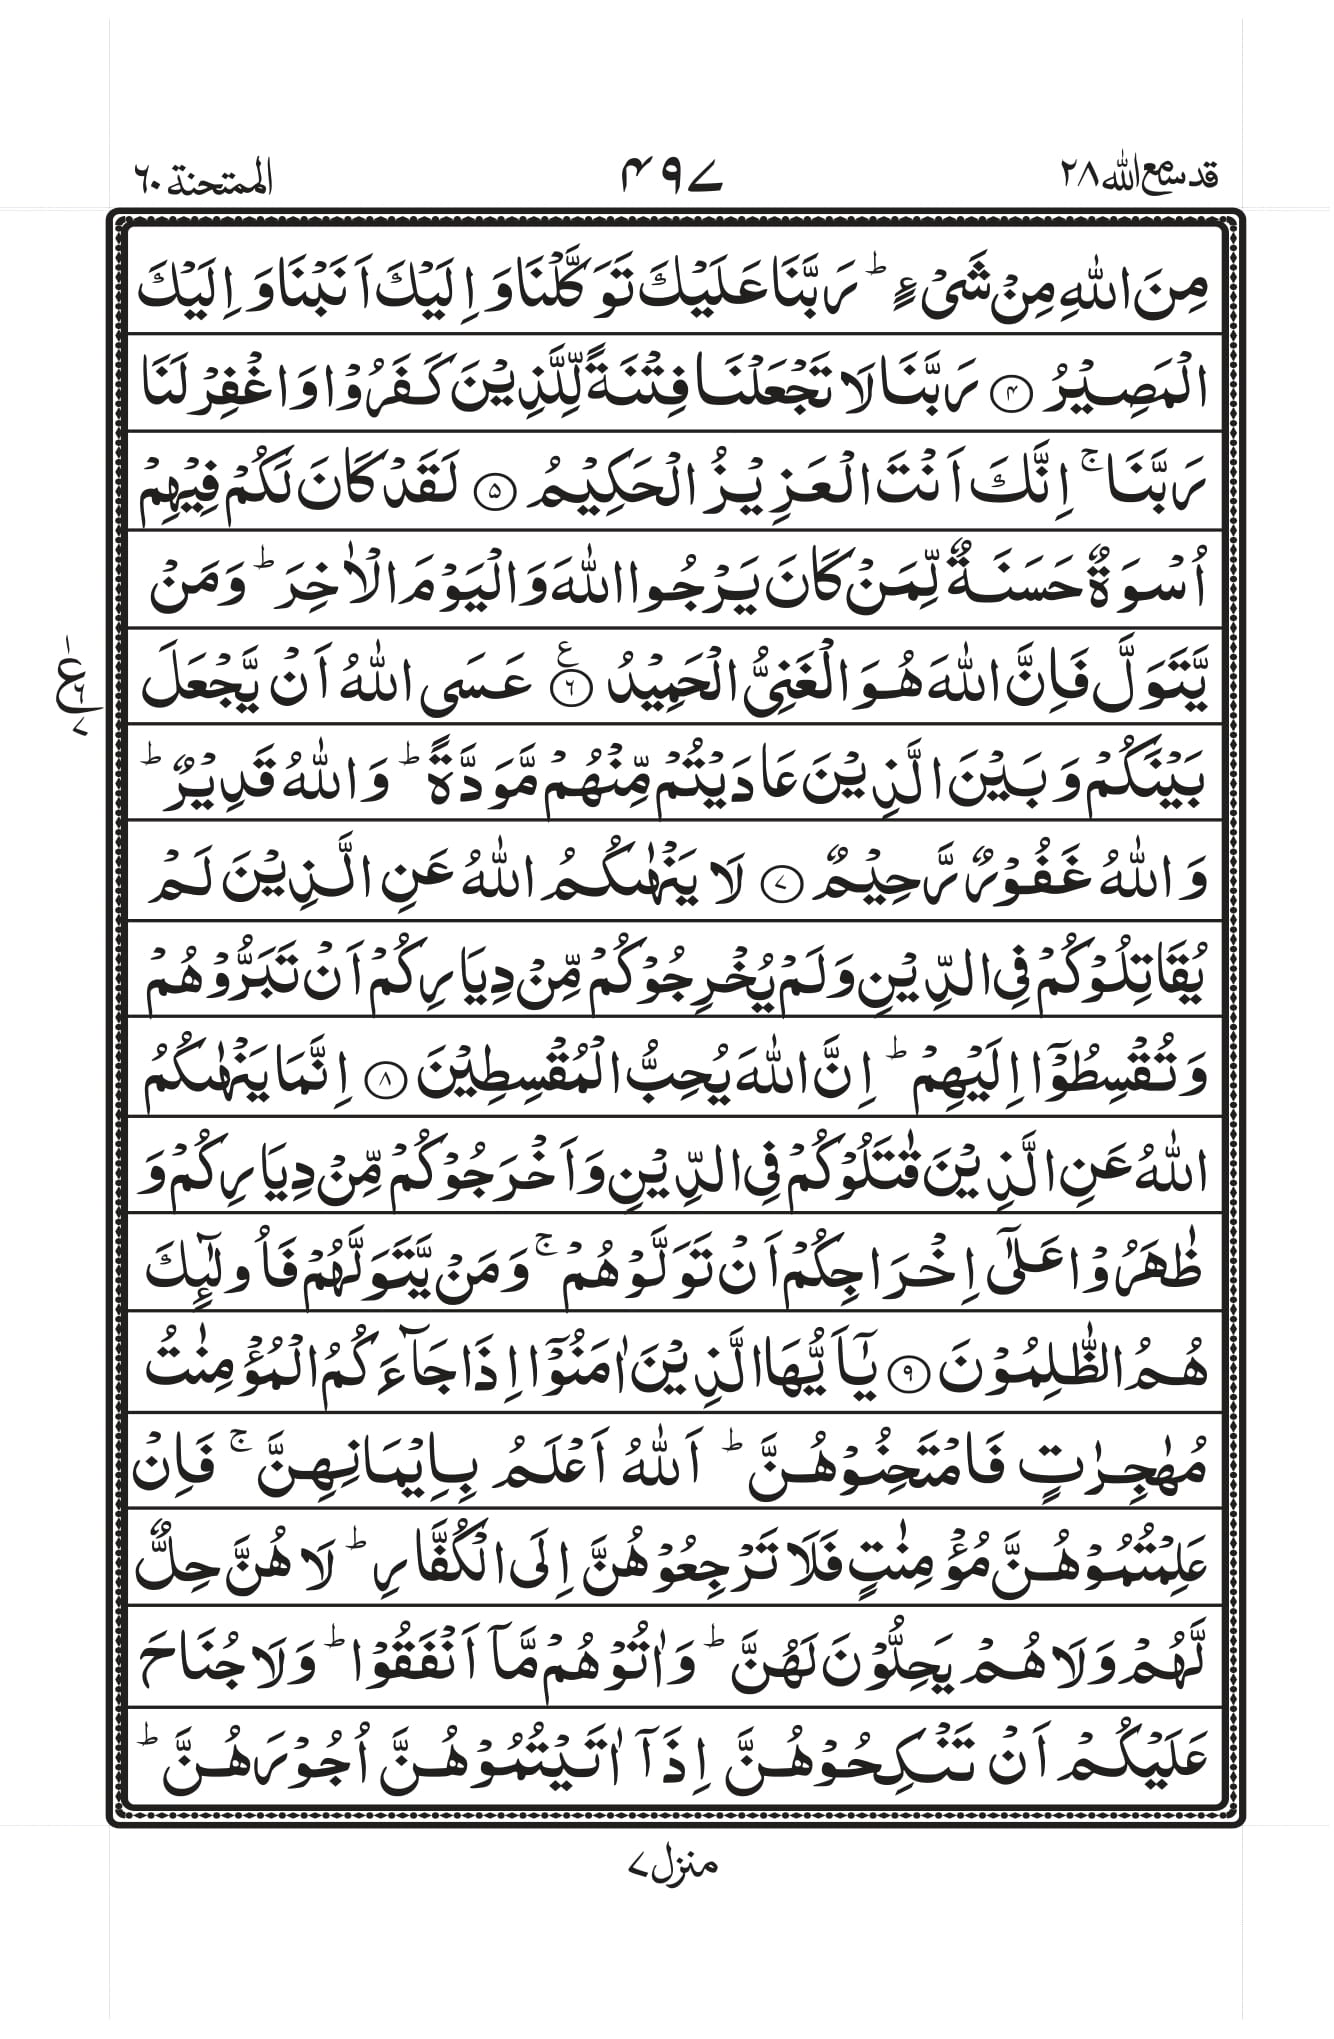 قد سمع الله ٢٨
٤٩٧
الممتحنة ٦٠
مِنَ اللّٰهِ مِنْ شَیْءٍ ؕ رَبَّنَا عَلَیْكَ تَوَكَّلْنَا وَ اِلَیْكَ اَنَبْنَا وَ اِلَیْكَ
الْمَصِیْرُ ۝۴ رَبَّنَا لَا تَجْعَلْنَا فِتْنَةً لِّلَّذِیْنَ كَفَرُوْا وَ اغْفِرْ لَنَا
رَبَّنَا ۚ اِنَّكَ اَنْتَ الْعَزِیْزُ الْحَكِیْمُ ۝۵ لَقَدْ كَانَ لَكُمْ فِیْهِمْ
اُسْوَةٌ حَسَنَةٌ لِّمَنْ كَانَ یَرْجُوا اللّٰهَ وَ الْیَوْمَ الْاٰخِرَ ؕ وَ مَنْ
یَّتَوَلَّ فَاِنَّ اللّٰهَ هُوَ الْغَنِیُّ الْحَمِیْدُ ۝۶ ع عَسَی اللّٰهُ اَنْ یَّجْعَلَ
ع ٦ ٧
بَیْنَكُمْ وَ بَیْنَ الَّذِیْنَ عَادَیْتُمْ مِّنْهُمْ مَّوَدَّةً ؕ وَ اللّٰهُ قَدِیْرٌ ؕ
وَ اللّٰهُ غَفُوْرٌ رَّحِیْمٌ ۝۷ لَا یَنْهٰىكُمُ اللّٰهُ عَنِ الَّذِیْنَ لَمْ
یُقَاتِلُوْكُمْ فِی الدِّیْنِ وَ لَمْ یُخْرِجُوْكُمْ مِّنْ دِیَارِكُمْ اَنْ تَبَرُّوْهُمْ
وَ تُقْسِطُوْۤا اِلَیْهِمْ ؕ اِنَّ اللّٰهَ یُحِبُّ الْمُقْسِطِیْنَ ۝۸ اِنَّمَا یَنْهٰىكُمُ
اللّٰهُ عَنِ الَّذِیْنَ قٰتَلُوْكُمْ فِی الدِّیْنِ وَ اَخْرَجُوْكُمْ مِّنْ دِیَارِكُمْ وَ
ظٰهَرُوْا عَلٰۤی اِخْرَاجِكُمْ اَنْ تَوَلَّوْهُمْ ۚ وَ مَنْ یَّتَوَلَّهُمْ فَاُولٰٓىِٕكَ
هُمُ الظّٰلِمُوْنَ ۝۹ یٰۤاَیُّهَا الَّذِیْنَ اٰمَنُوْۤا اِذَا جَآءَكُمُ الْمُؤْمِنٰتُ
مُهٰجِرٰتٍ فَامْتَحِنُوْهُنَّ ؕ اَللّٰهُ اَعْلَمُ بِاِیْمَانِهِنَّ ۚ فَاِنْ
عَلِمْتُمُوْهُنَّ مُؤْمِنٰتٍ فَلَا تَرْجِعُوْهُنَّ اِلَی الْكُفَّارِ ؕ لَا هُنَّ حِلٌّ
لَّهُمْ وَ لَا هُمْ یَحِلُّوْنَ لَهُنَّ ؕ وَ اٰتُوْهُمْ مَّاۤ اَنْفَقُوْا ؕ وَ لَا جُنَاحَ
عَلَیْكُمْ اَنْ تَنْكِحُوْهُنَّ اِذَاۤ اٰتَیْتُمُوْهُنَّ اُجُوْرَهُنَّ ؕ
منزل ٧